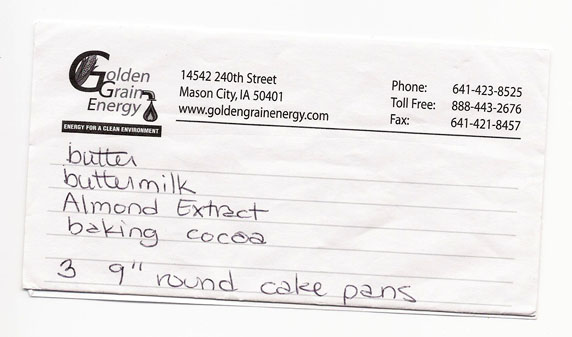 Golden
Grain
Energy
ENERGY FOR A CLEAN ENVIRONMENT
14542 240th Street
Mason City, IA 50401
www.goldengrainenergy.com
Phone: 641-423-8525
Toll Free: 888-443-2676
Fax: 641-421-8457
butter
buttermilk
Almond Extract
baking cocoa
3 9" round cake pans